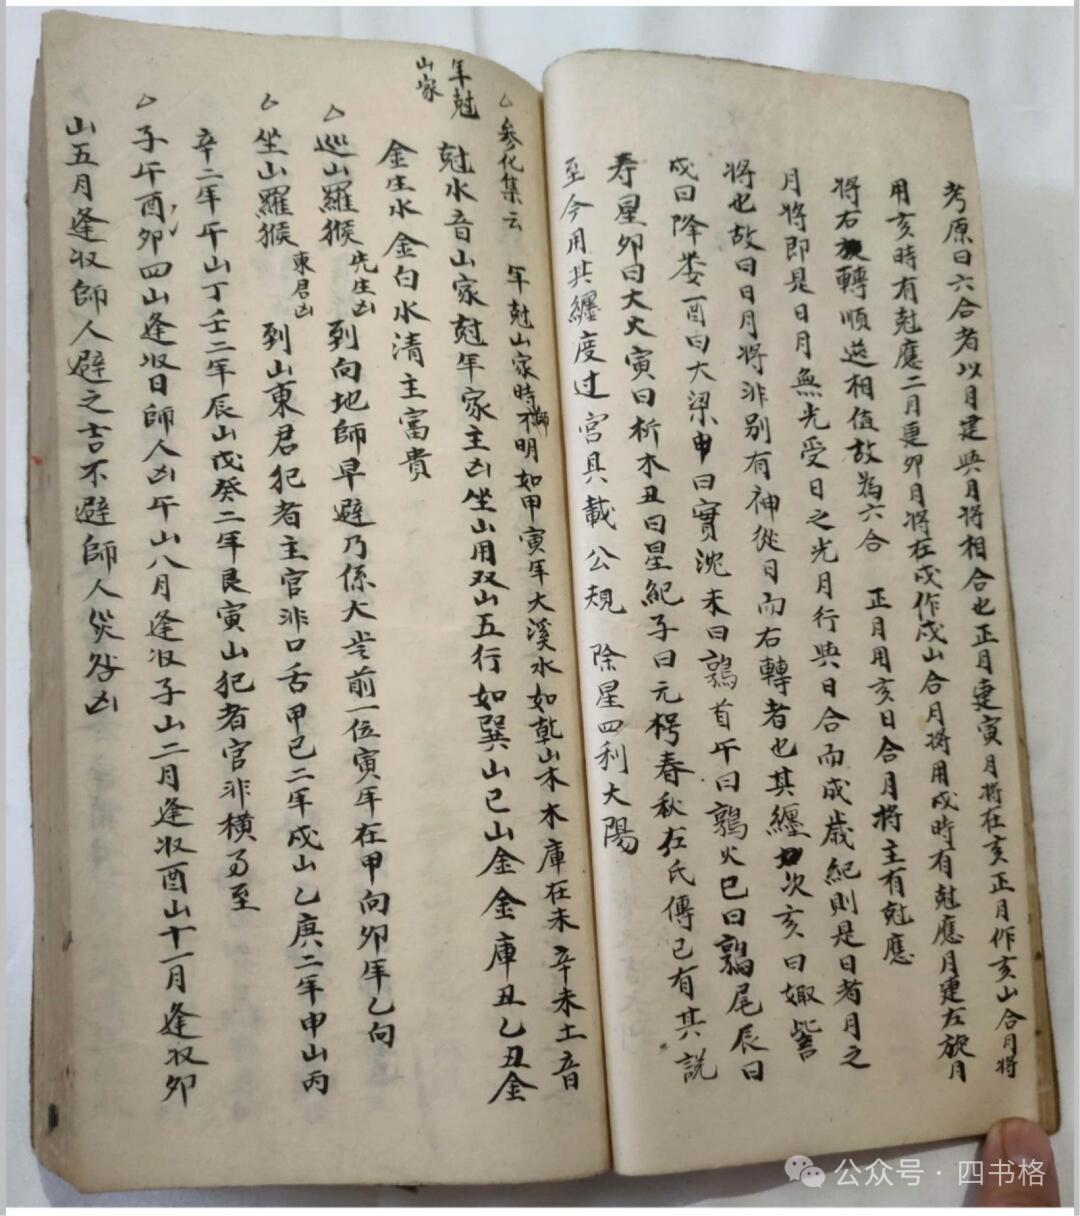 考原曰六合者以月建與月將相合也正月建寅月將在亥正月作亥山合月將
用亥時有尅應二月建卯月將在戌作戌山合月將用戌時有尅應月建左旋月
將右旋轉順逆相值故為六合 正月用亥日合月將主有尅應
月將即是日月無光受日之光月行與日合而成歲紀則是日者月之
將也故曰日月將非別有神從日而右轉者也其纏次亥曰娵訾
戌曰降婁酉曰大梁申曰實沈未曰鶉首午曰鶉火巳曰鶉尾辰曰
寿星卯曰大火寅曰析木丑曰星紀子曰元枵春秋左氏傳已有其説
至今用其纏度过宮具載公規 除星四利太陽
年尅山家
△參化集云 年尅山家時師不明如甲寅年大溪水如乾山木木庫在未辛未土音
尅水音山家尅年家主凶坐山用双山五行如巽山巳山金金庫丑乙丑金
金生水金白水清主富貴
△巡山羅猴先生凶到向地師早避乃係大岁前一位寅年在甲向卯年乙向
△坐山羅猴東君凶到山東君犯者主官非口舌甲己二年戌山乙庚二年申山丙
辛二年午山丁壬二年辰山戊癸二年艮寅山犯者官非横至
△子午酉卯四山逢收日師人凶午山八月逢收子山二月逢收酉山十一月逢收卯
山五月逢收師人避之吉不避師人災咎凶
公众号·四书格